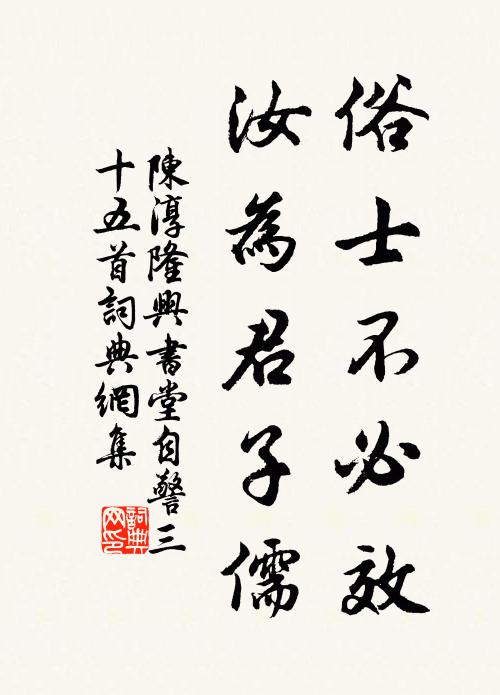 俗士不必效
汝為君子儒
陳淳隆興書堂自警三
十五首詞典網集
詞典
网印